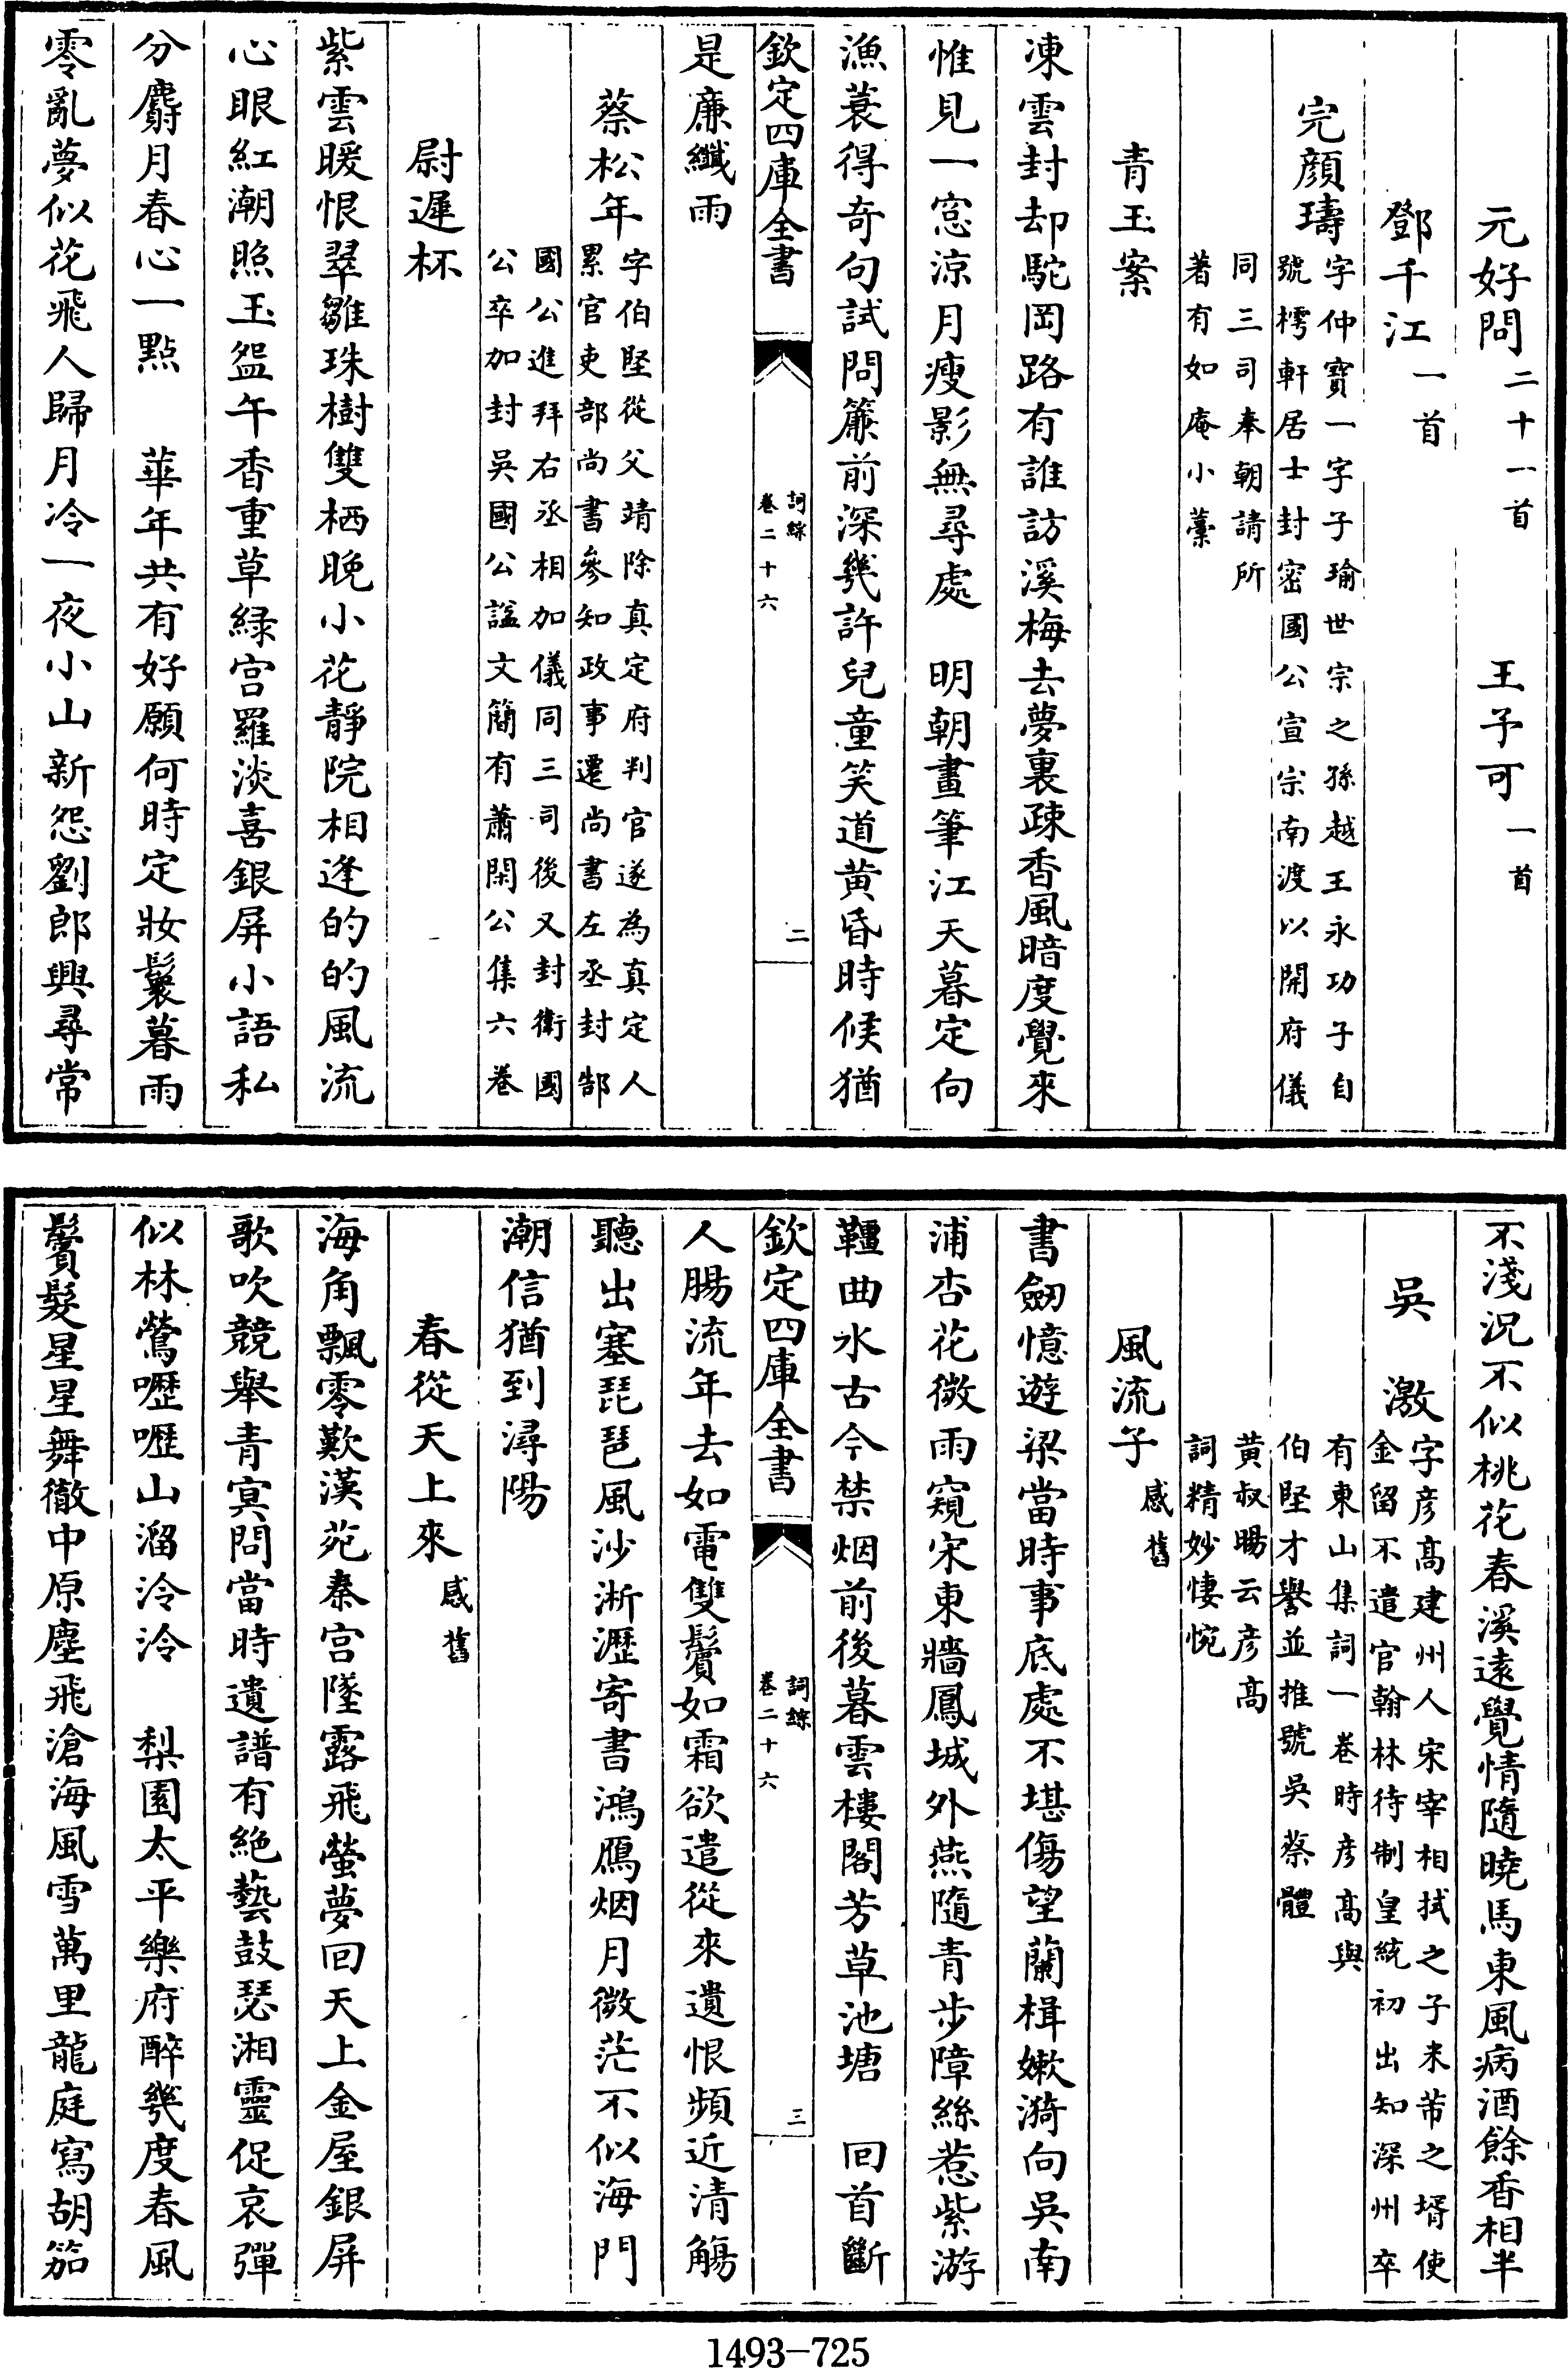 元好問二十一首　王予可一首
鄧千江一首
完顔璹字仲寶一字子瑜世宗之孫越王永功子自
號樗軒居士封密國公宣宗南渡以開府儀
同三司奉朝請所
著有如庵小藁
青玉案
凍雲封却駝岡路有誰訪溪梅去夢裏疎香風暗度覺來
惟見一窓涼月瘦影無尋處　明朝畫筆江天暮定向
漁蓑得奇句試問簾前深幾許兒童笑道黄昏時候猶
欽定四庫全書　詞綜　卷二十六　二
是廉纖雨
蔡松年字伯堅從父靖除真定府判官遂為真定人
累官吏部尚書參知政事遷尚書左丞封郜
國公進拜右丞相加儀同三司後又封衛國
公卒加封吳國公諡文簡有蕭閑公集六卷
尉遲杯
紫雲暖恨翠雛珠樹雙栖晚小花靜院相逢的的風流
心眼紅潮照玉盌午香重草緑宫羅淡喜銀屏小語私
分麝月春心一點　華年共有好願何時定妝鬟暮雨
零亂夢似花飛人歸月冷一夜小山新怨劉郎興尋常
不淺況不似桃花春溪遠覺情隨曉馬東風病酒餘香相半
吳激字彦髙建州人宋宰相拭之子米芾之壻使
金留不遣官翰林待制皇統初出知深州卒
有東山集詞一卷時彦髙與
伯堅才譽並推號吳蔡體
黄叔暘云彦髙
詞精妙悽惋
風流子感舊
書劒憶遊梁當時事底處不堪傷望蘭楫嫩漪向吳南
浦杏花微雨窺宋東牆鳳城外燕隨青步障絲惹紫游
韁曲水古今禁烟前後暮雲樓閣芳草池塘　回首斷
欽定四庫全書　詞綜　卷二十六　三
人腸流年去如電雙鬢如霜欲遣從來遺恨頻近清觴
聽出塞琵琶風沙淅瀝寄書鴻鴈烟月微茫不似海門
潮信猶到潯陽
春從天上來感舊
海角飄零歎漢苑秦宫墜露飛螢夢回天上金屋銀屏
歌吹競舉青冥問當時遺譜有絶藝鼓瑟湘靈促哀彈
似林鶯嚦嚦山溜泠泠　梨園太平樂府醉幾度春風
鬢髮星星舞徹中原塵飛滄海風雪萬里龍庭寫胡笳
1493-725